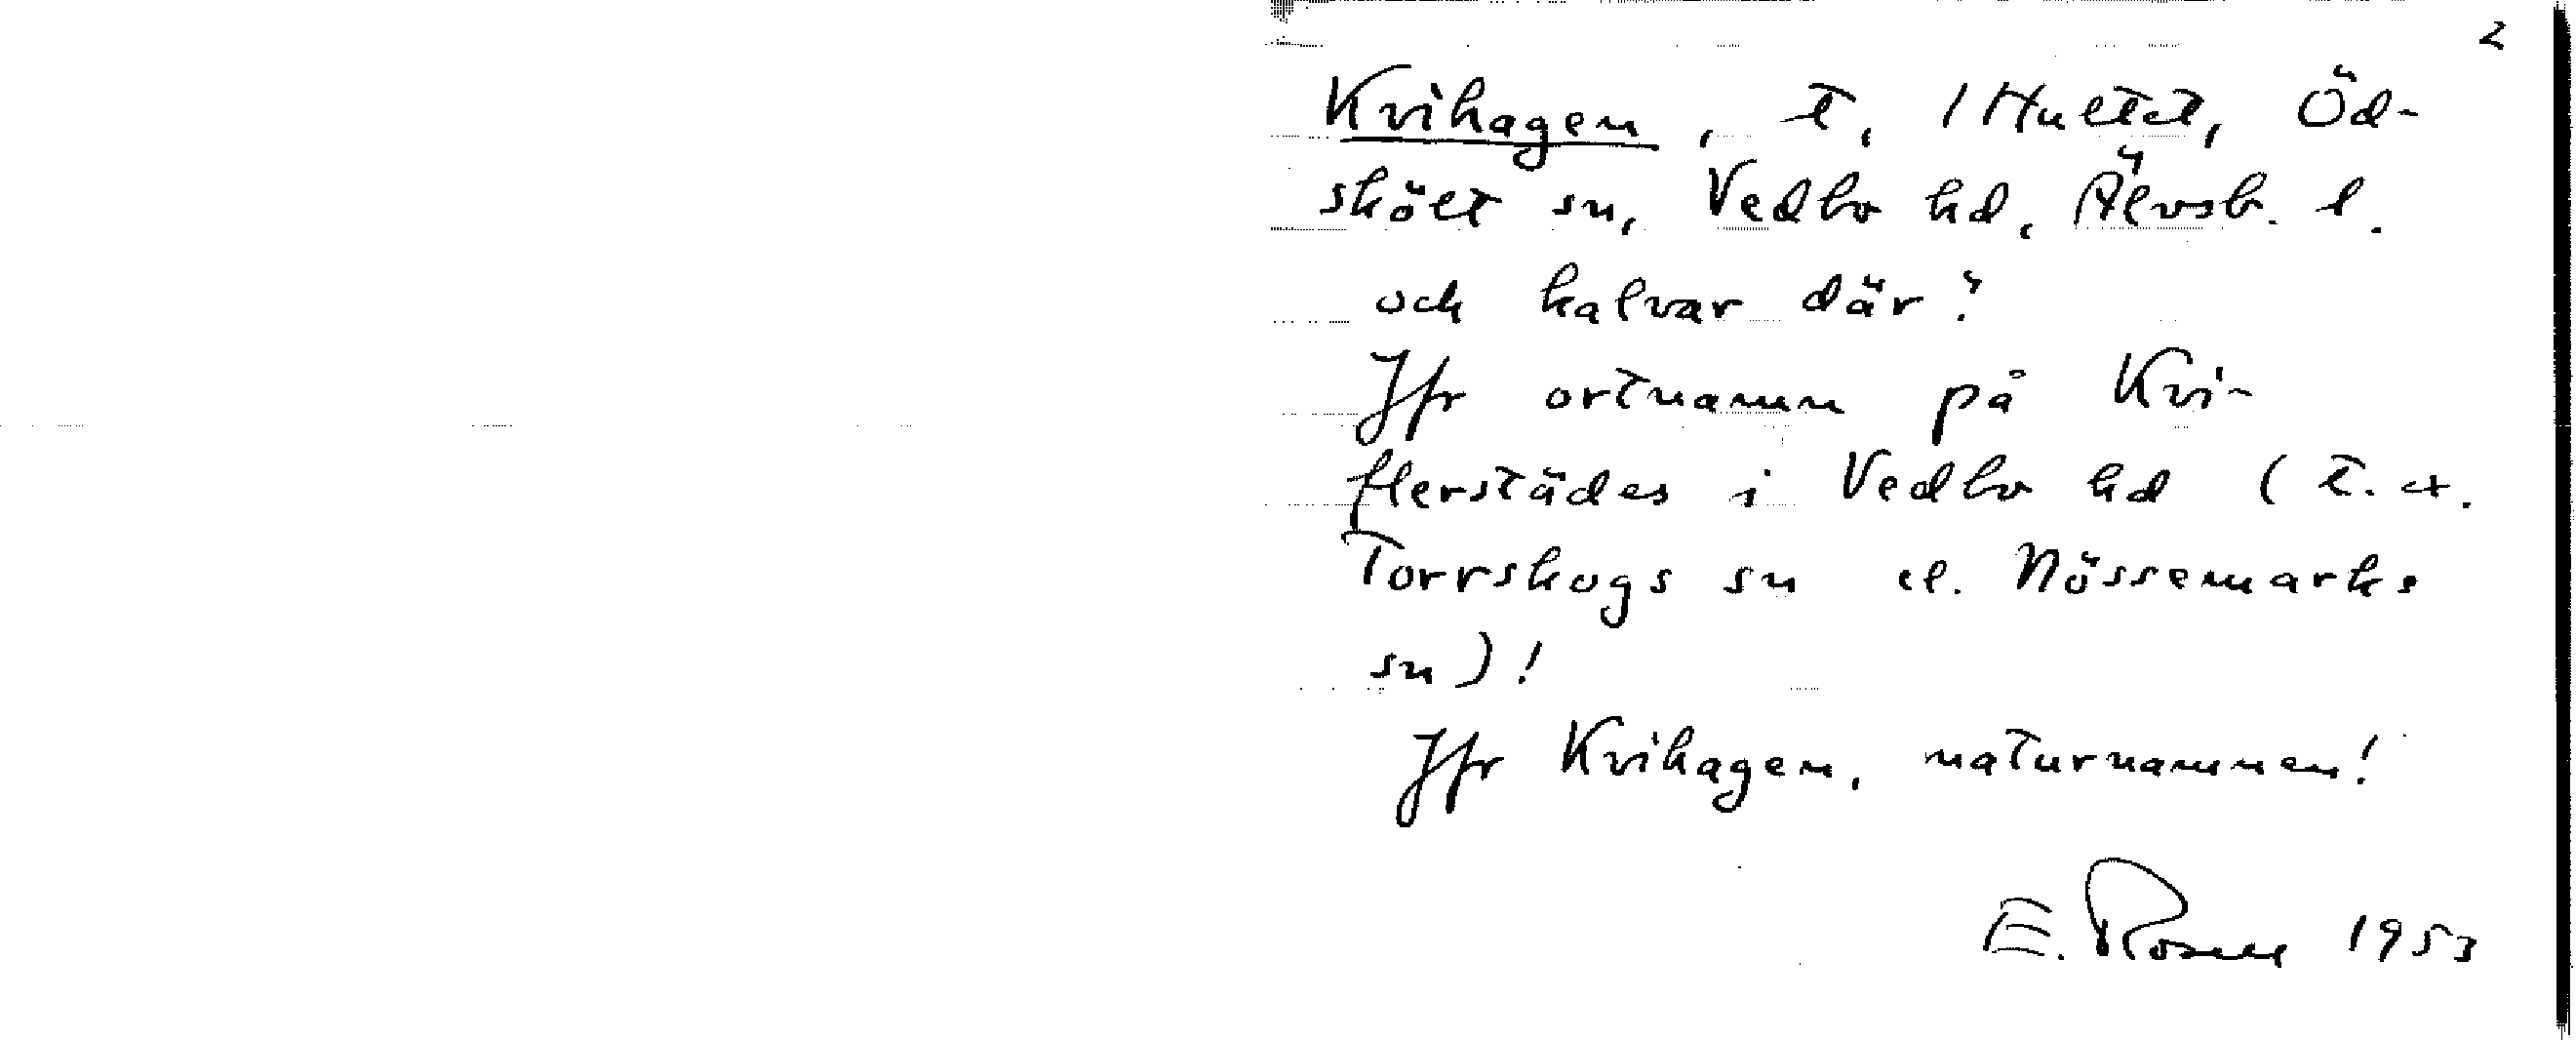 2
Kvihagen, t, 1 Hultet, Öd-
skölt sn, Vedbo hd, Älvsb. l.
och kalvar där?
Jfr ortnamn på Kvi-
flerstädes i Vedbo hd (t.ex.
Torrskogs sn el. Nössemarks
sn)!
Jfr Kvihagen, naturnamnen!
E. Rosell 1953